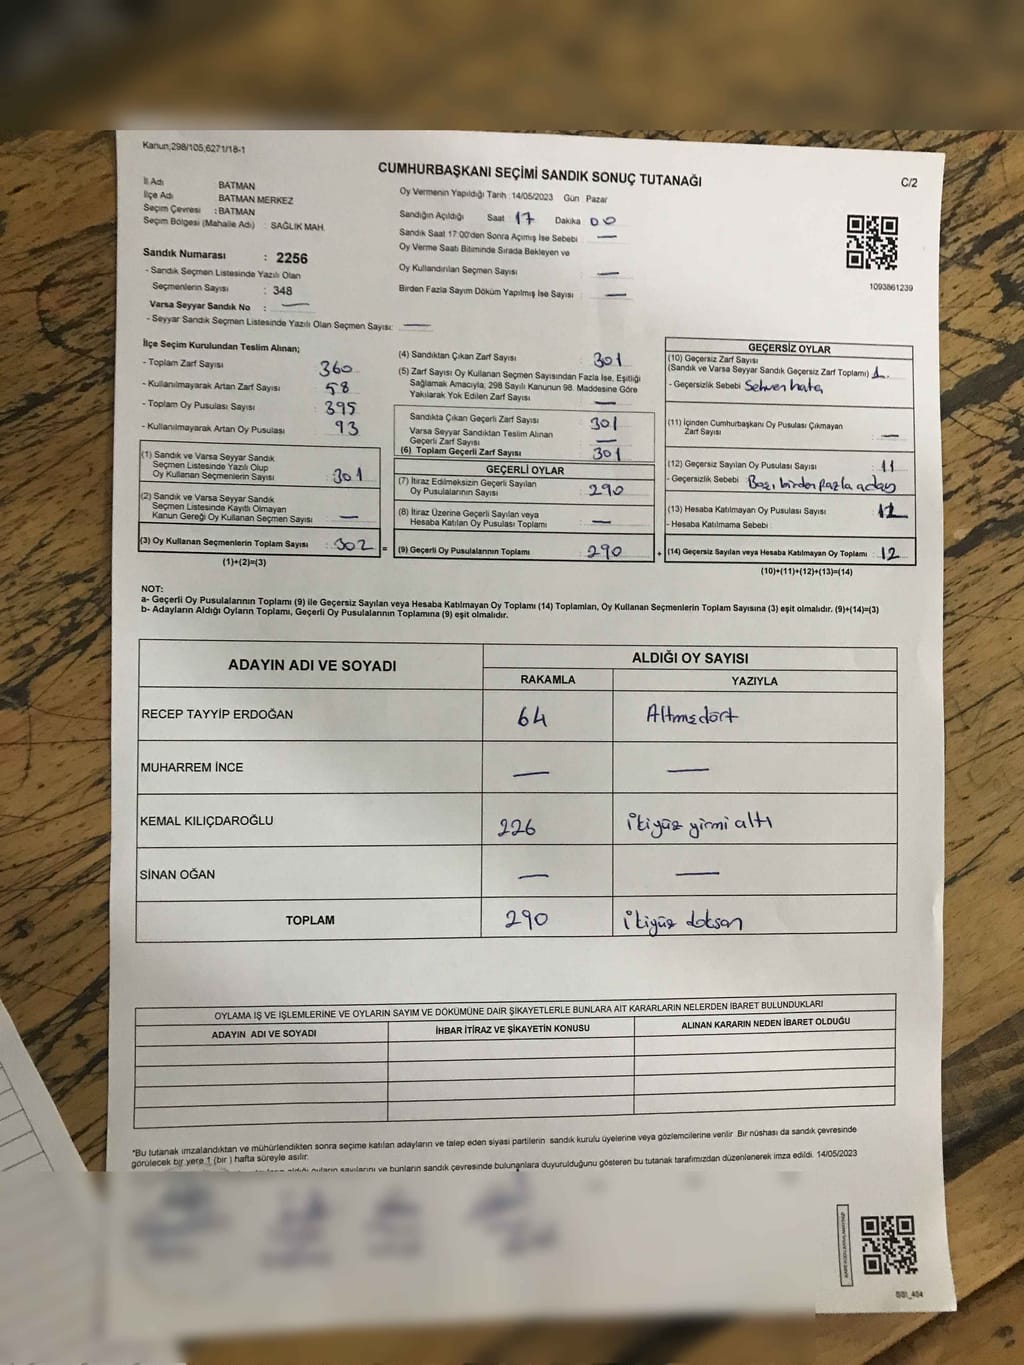 Kanun;298/105,6271/18-1
CUMHURBAŞKANI SEÇİMİ SANDIK SONUÇ TUTANAĞI
C/2
İl Adı : BATMAN
İlçe Adı : BATMAN MERKEZ
Seçim Çevresi : BATMAN
Seçim Bölgesi (Mahalle Adı) : SAĞLIK MAH.
Sandık Numarası : 2256
- Sandık Seçmen Listesinde Yazılı Olan
Seçmenlerin Sayısı : 348
Varsa Seyyar Sandık No : —
- Seyyar Sandık Seçmen Listesinde Yazılı Olan Seçmen Sayısı: —
Oy Vermenin Yapıldığı Tarih :14/05/2023 Gün Pazar
Sandığın Açıldığı Saat 17 Dakika 00
Sandık Saat 17:00'den Sonra Açımış İse Sebebi —
Oy Verme Saati Bitiminde Sırada Bekleyen ve
Oy Kullandırılan Seçmen Sayısı : —
Birden Fazla Sayım Döküm Yapılmış İse Sayısı : —
1093861239
İlçe Seçim Kurulundan Teslim Alınan;
- Toplam Zarf Sayısı : 360
- Kullanılmayarak Artan Zarf Sayısı : 58
- Toplam Oy Pusulası Sayısı : 395
- Kullanılmayarak Artan Oy Pusulası : 93
(1) Sandık ve Varsa Seyyar Sandık
Seçmen Listesinde Yazılı Olup
Oy Kullanan Seçmenlerin Sayısı : 301
(2) Sandık ve Varsa Seyyar Sandık
Seçmen Listesinde Kayıtlı Olmayan
Kanun Gereği Oy Kullanan Seçmen Sayısı : —
(3) Oy Kullanan Seçmenlerin Toplam Sayısı : 302
(1)+(2)=(3)
(4) Sandıktan Çıkan Zarf Sayısı : 301
(5) Zarf Sayısı Oy Kullanan Seçmen Sayısından Fazla İse, Eşitliği
Sağlamak Amacıyla, 298 Sayılı Kanunun 98. Maddesine Göre
Yakılarak Yok Edilen Zarf Sayısı : —
Sandıkta Çıkan Geçerli Zarf Sayısı : 301
Varsa Seyyar Sandıktan Teslim Alınan
Geçerli Zarf Sayısı : —
(6) Toplam Geçerli Zarf Sayısı : 301
GEÇERLİ OYLAR
(7) İtiraz Edilmeksizin Geçerli Sayılan
Oy Pusulalarının Sayısı : 290
(8) İtiraz Üzerine Geçerli Sayılan veya
Hesaba Katılan Oy Pusulası Toplamı : —
= (9) Geçerli Oy Pusulalarının Toplamı : 290
GEÇERSİZ OYLAR
(10) Geçersiz Zarf Sayısı
(Sandık ve Varsa Seyyar Sandık Geçersiz Zarf Toplamı) 1
- Geçersizlik Sebebi Sehven hata
(11) İçinden Cumhurbaşkanı Oy Pusulası Çıkmayan
Zarf Sayısı : —
(12) Geçersiz Sayılan Oy Pusulası Sayısı : 11
- Geçersizlik Sebebi Bazı birden fazla aday
(13) Hesaba Katılmayan Oy Pusulası Sayısı : 12
- Hesaba Katılmama Sebebi :
+ (14) Geçersiz Sayılan veya Hesaba Katılmayan Oy Toplamı : 12
(10)+(11)+(12)+(13)=(14)
NOT:
a- Geçerli Oy Pusulalarının Toplamı (9) ile Geçersiz Sayılan veya Hesaba Katılmayan Oy Toplamı (14) Toplamları, Oy Kullanan Seçmenlerin Toplam Sayısına (3) eşit olmalıdır. (9)+(14)=(3)
b- Adayların Aldığı Oyların Toplamı, Geçerli Oy Pusulalarının Toplamına (9) eşit olmalıdır.
ADAYIN ADI VE SOYADI ALDIĞI OY SAYISI
RAKAMLA YAZIYLA
RECEP TAYYİP ERDOĞAN 64 Altmşdört
MUHARREM İNCE — —
KEMAL KILIÇDAROĞLU 226 ikiyüz yirmi altı
SİNAN OĞAN — —
TOPLAM 290 ikiyüz doksan
OYLAMA İŞ VE İŞLEMLERİNE VE OYLARIN SAYIM VE DÖKÜMÜNE DAİR ŞİKAYETLERLE BUNLARA AİT KARARLARIN NELERDEN İBARET BULUNDUKLARI
ADAYIN ADI VE SOYADI İHBAR İTİRAZ VE ŞİKAYETİN KONUSU ALINAN KARARIN NEDEN İBARET OLDUĞU
*Bu tutanak imzalandıktan ve mühürlendikten sonra seçime katılan adayların ve talep eden siyasi partilerin sandık kurulu üyelerine veya gözlemcilerine verilir Bir nüshası da sandık çevresinde
görülecek bir yere 1 (bir ) hafta süreyle asılır.
oyların sayılarını ve bunların sandık çevresinde bulunanlara duyurulduğunu gösteren bu tutanak tarafımızdan düzenlenerek imza edildi. 14/05/2023